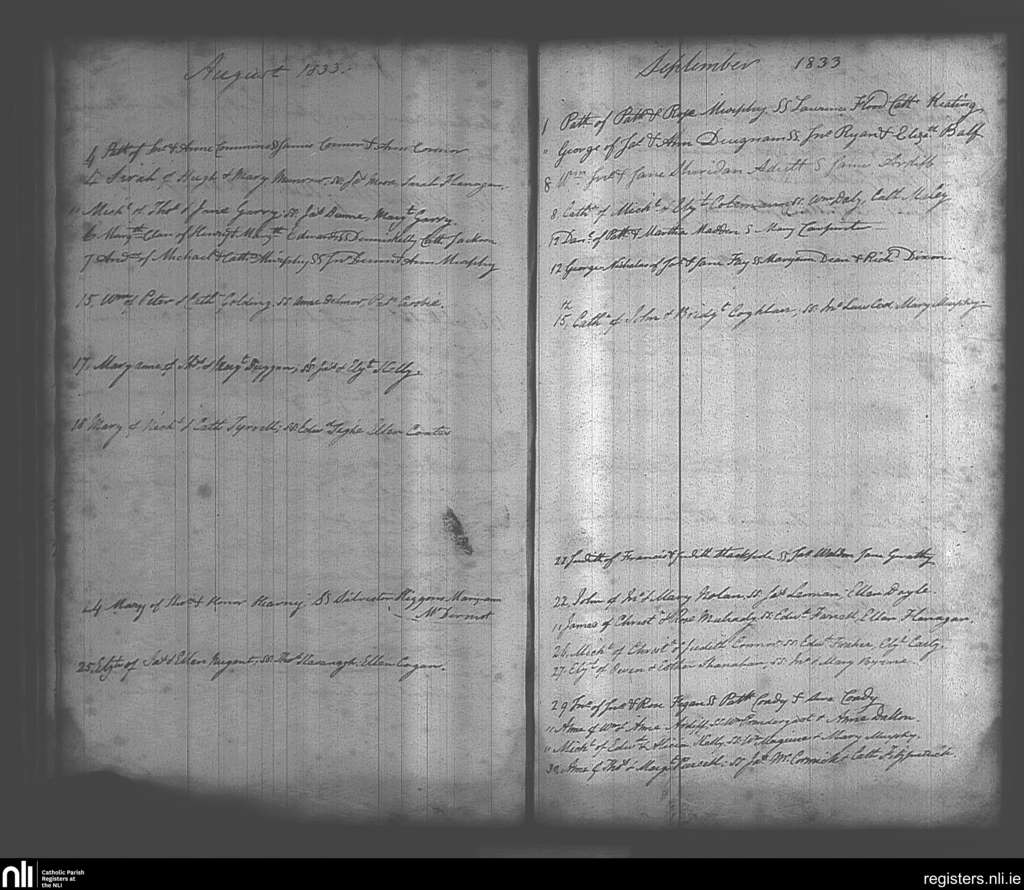 August 1833.
4 Patk of Jno & Anne Commins SS James Connor & Ann Connor
4 Sarah of Hugh & Mary SS Jas Sarah Flanagan.
" Michl of Thos & Jane Garry. SS. Jas Dunne, Margt Garry
6 Margt Clare of Henry & Margt Edwards SS Dennis Kelly Cath Jackson
7 of Michael & Cathn Murphy SS Jno & Ann Murphy
15, Wm of Peter & Cathn Golding, SS Anne
17, Maryanne of Thos & Margt Duggan, SS Jas & Elizt Kelly.
18 Mary of Michl & Cath Tyrrell; SS. Edwd Tighe Ellen
24 Mary of Thos & Honor Kearny SS Silvester Higgons Maryann
McDermot
25. Elizth of Jas & Ellen Nugent, SS. Thos Kavanagh, Ellen Cogan.
September 1833
1 Patk of Patk & Rose Murphy SS Laurence Flood Cathn Keating
" George of Jas & Ann Duignam SS. Jno Ryan & Elizath Balf
8 Wm Jno & Jane Sheridan S Jane Ardiff
8. Cathn of Michl & Elizt Coleman SS. Wm Daly, Cath Maley
12 Danl of Patk & Martha Madden S. Mary
12 George Nicholas of Jas & Jane Fay SS Maryann Dean & Richd Dixon
th
15, Cathn of John & Bridgt Coghlan, SS. Mary Murphy.
22 Judith of Francis & Judith Stackpole SS Jas Jane
22 John of Jno & Mary Nolan, SS. Jas Ellen Doyle
" James of Christr & Rose SS. Edwd Ellen Flanagan.
26. Michl of Christr & Judith Connor SS Edwd Elizt
27. Elizt of Owen & Esther Shanahan, SS. Jno & Mary Byrne
29 Jno of Jno & Rose Fegan SS Patk Condy & Anne Condy
" Anne of Wm & Anne Ardiff SS. Wm & Anne Dalton.
" Michl of Edwd & Alicia Kelly. SS. Wm Maguire & Mary Murphy.
30, Anne of Thos & Margt Purcell. SS Jas McCormick & Cath Fitzpatrick.
nli
Catholic Parish
Registers at
the NLI
registers.nli.ie